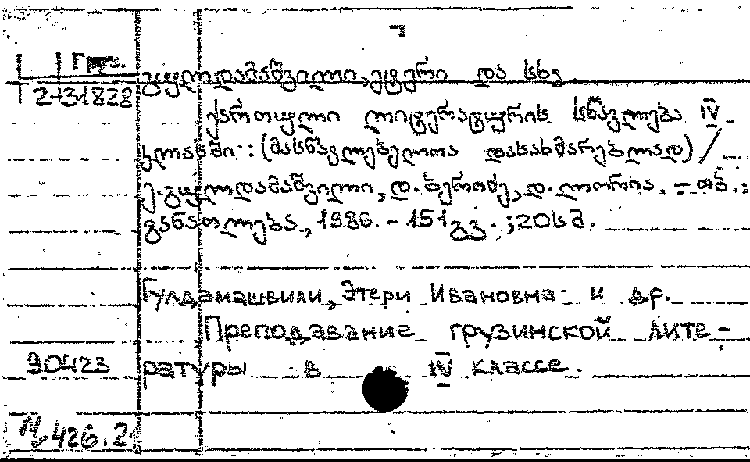 Груз.
2-31828
გულდამაშვილი, ეტერი და სხვ.
ქართული ლიტერატურის სწავლება IV
კლასში : (მასწავლებელთა დასახმარებლად) /
ე. გულდამაშვილი, დ. ბეროძე, დ. ლორია. – თბ. :
განათლება, 1986. – 151 გვ. ; 20 სმ.
Гулдамашвили, Этери Ивановна и др.
Преподавание грузинской лите-
90423 ратуры в IV классе.
426.2